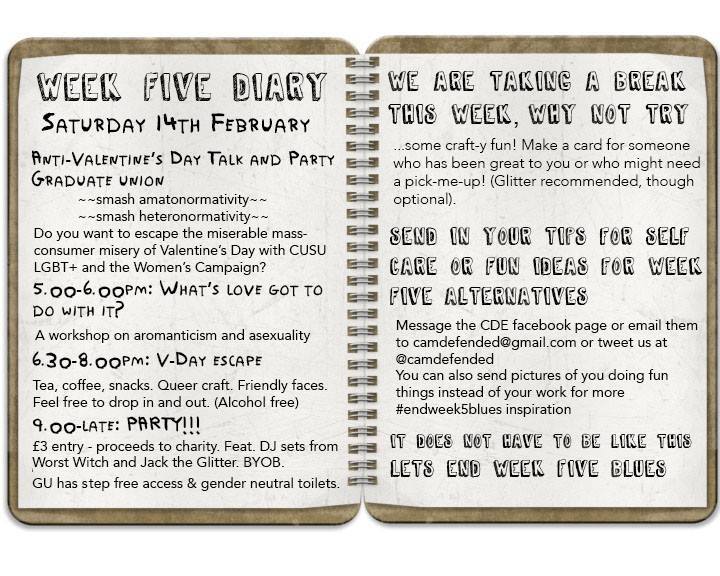 WEEK FIVE DIARY
SATURDAY 14TH FEBRUARY
ANTI-VALENTINE'S DAY TALK AND PARTY
GRADUATE UNION
~~smash amatonormativity~~
~~smash heteronormativity~~
Do you want to escape the miserable mass-
consumer misery of Valentine's Day with CUSU
LGBT+ and the Women's Campaign?
5.00-6.00PM: WHAT'S LOVE GOT TO
DO WITH IT?
A workshop on aromanticism and asexuality
6.30-8.00PM: V-DAY ESCAPE
Tea, coffee, snacks. Queer craft. Friendly faces.
Feel free to drop in and out. (Alcohol free)
9.00-LATE: PARTY!!!
£3 entry - proceeds to charity. Feat. DJ sets from
Worst Witch and Jack the Glitter. BYOB.
GU has step free access & gender neutral toilets.
WE ARE TAKING A BREAK
THIS WEEK, WHY NOT TRY
...some craft-y fun! Make a card for someone
who has been great to you or who might need
a pick-me-up! (Glitter recommended, though
optional).
SEND IN YOUR TIPS FOR SELF
CARE OR FUN IDEAS FOR WEEK
FIVE ALTERNATIVES
Message the CDE facebook page or email them
to camdefended@gmail.com or tweet us at
@camdefended
You can also send pictures of you doing fun
things instead of your work for more
#endweek5blues inspiration
IT DOES NOT HAVE TO BE LIKE THIS
LETS END WEEK FIVE BLUES